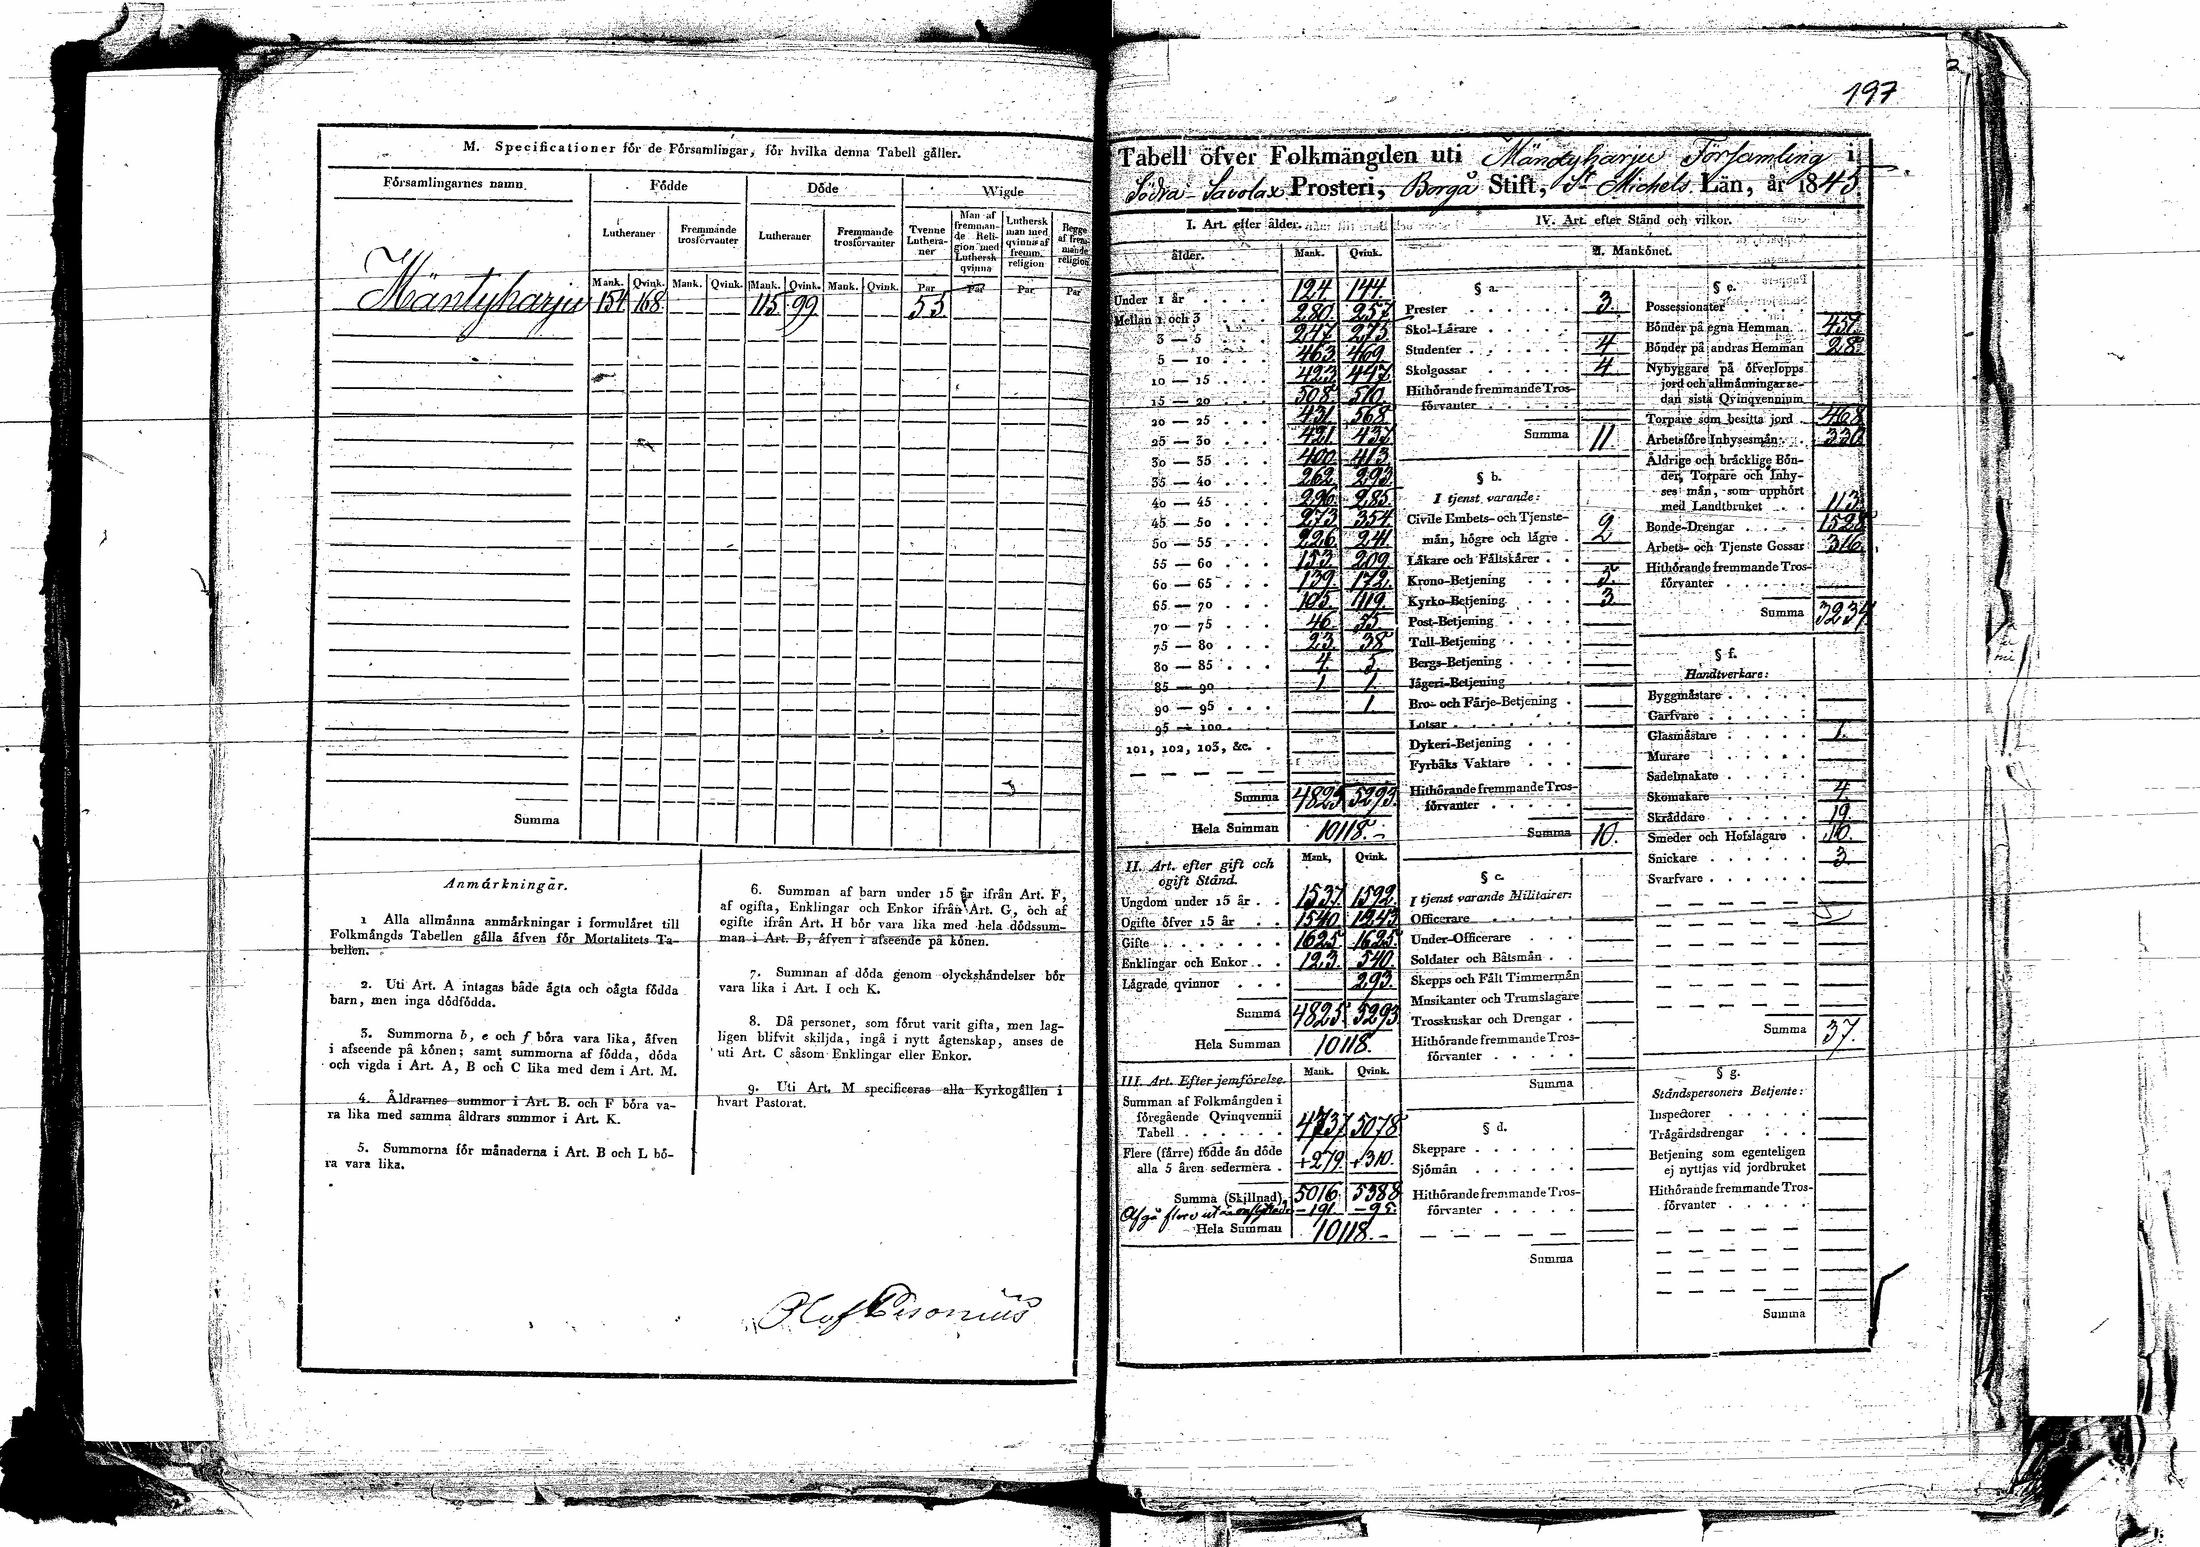 M. Specificationer för de Församlingar, för hvilka denna Tabell gäller.
Församlingarnes namn.
Födde
Döde
Wigde
Lutheraner
Fremmande trosförvanter
Lutheraner
Fremmande trosförvanter
Tvenne Lutheraner
Man af fremmande Religion med Luthersk qvinna
Luthersk man med qvinna af fremm. religion
Begge af fremmande religion
Mank. Qvink. Mank. Qvink. Mank. Qvink. Mank. Qvink. Par Par Par Par
Mäntyharju 154 168 115 99 53
Summa
Anmärkningar.
1 Alla allmänna anmärkningar i formuläret till
Folkmängds Tabellen gälla äfven för Mortalitets Ta-
bellen.
2. Uti Art. A intagas både ägta och oägta födda
barn, men inga dödfödda.
3. Summorna b, e och f böra vara lika, äfven
i afseende på könen; samt summorna af födda, döda
och vigda i Art. A, B och C lika med dem i Art. M.
4. Åldrarnes summor i Art. B. och F böra va-
ra lika med samma åldrars summor i Art. K.
5. Summorna för månaderna i Art. B och L bö-
ra vara lika.
6. Summan af barn under 15 år ifrån Art. F,
af ogifta, Enklingar och Enkor ifrån Art. G, och af
ogifte ifrån Art. H bör vara lika med hela dödssum-
man i Art. B, äfven i afseende på könen.
7. Summan af döda genom olyckshändelser bör
vara lika i Art. I och K.
8. Då personer, som förut varit gifta, men lag-
ligen blifvit skiljda, ingå i nytt ägtenskap, anses de
uti Art. C såsom Enklingar eller Enkor.
9. Uti Art. M specificeras alla Kyrkogällen i
hvart Pastorat.
197
Tabell öfver Folkmängden uti Mändyharju Församling i
Södra Savolax Prosteri, Borgå Stift, St Michels Län, år 1845.
I. Art. efter ålder.
ålder. Mank. Qvink.
Under 1 år 124 144
Mellan 1 och 3 280 257
3 — 5 247 275
5 — 10 463 469
10 — 15 423 447
15 — 20 508 510
20 — 25 431 568
25 — 30 421 437
30 — 35 400 413
35 — 40 262 293
40 — 45 296 285
45 — 50 273 354
50 — 55 226 241
55 — 60 153 209
60 — 65 139 172
65 — 70 105 119
70 — 75 46 55
75 — 80 23 38
80 — 85 4 5
85 — 90 1 1
90 — 95 1
95 — 100
101, 102, 103, &c.
Summa 4825 5293
Hela Summan 10118.
II. Art. efter gift och
ogift Stånd. Mank. Qvink.
Ungdom under 15 år 1537 1592
Ogifte öfver 15 år 1540 1243
Gifte 1625 1625
Enklingar och Enkor 123 540
Lägrade qvinnor 293
Summa 4825 5293
Hela Summan 10118.
III. Art. Efter jemförelse. Mank. Qvink.
Summan af Folkmängden i
föregående Qvinqvennii
Tabell 4737 5078
Flere (färre) födde än döde
alla 5 åren sedermera +279 +310
Summa (Skillnad) 5016 5388
Afgå flere ut än inflyttade −191 −95
Hela Summan 10118.
IV. Art. efter Stånd och vilkor.
1. Mankönet.
§ a.
Prester 3.
Skol-Lärare
Studenter 4
Skolgossar 4
Hithörande fremmande Tros-
förvanter
Summa 11.
§ b.
I tjenst varande:
Civile Embets- och Tjenste-
män, högre och lägre 2
Läkare och Fältskärer
Krono-Betjening 5.
Kyrko-Betjening 3.
Post-Betjening
Tull-Betjening
Bergs-Betjening
Jägeri-Betjening
Bro- och Färje-Betjening
Lotsar
Dykeri-Betjening
Fyrbåks Vaktare
Hithörande fremmande Tros-
förvanter
Summa 10.
§ c.
I tjenst varande Militairer:
Officerare
Under-Officerare
Soldater och Båtsmän
Skepps och Fält Timmermän
Musikanter och Trumslagare
Trosskuskar och Drengar
Hithörande fremmande Tros-
förvanter
Summa
§ d.
Skeppare
Sjömän
Hithörande fremmande Tros-
förvanter
Summa
§ e.
Possessionater
Bönder på egna Hemman 457
Bönder på andras Hemman 28
Nybyggare på öfverlopps
jord och allmänningar se-
dan sista Qvinqvennium
Torpare som besitta jord 468
Arbetsföre Inhysesmän 330
Åldrige och bräcklige Bön-
der, Torpare och Inhy-
ses män, som upphört
med Landtbruket 113
Bonde-Drengar 1525
Arbets- och Tjenste Gossar 316
Hithörande fremmande Tros-
förvanter
Summa 3237
§ f.
Handtverkare:
Byggmästare
Garfvare
Glasmästare 1.
Murare
Sadelmakare
Skomakare 4
Skräddare 19.
Smeder och Hofslagare 10.
Snickare 3
Svarfvare
Summa 37.
§ g.
Ståndspersoners Betjente:
Inspectorer
Trägårdsdrengar
Betjening som egenteligen
ej nyttjas vid jordbruket
Hithörande fremmande Tros-
förvanter
Summa